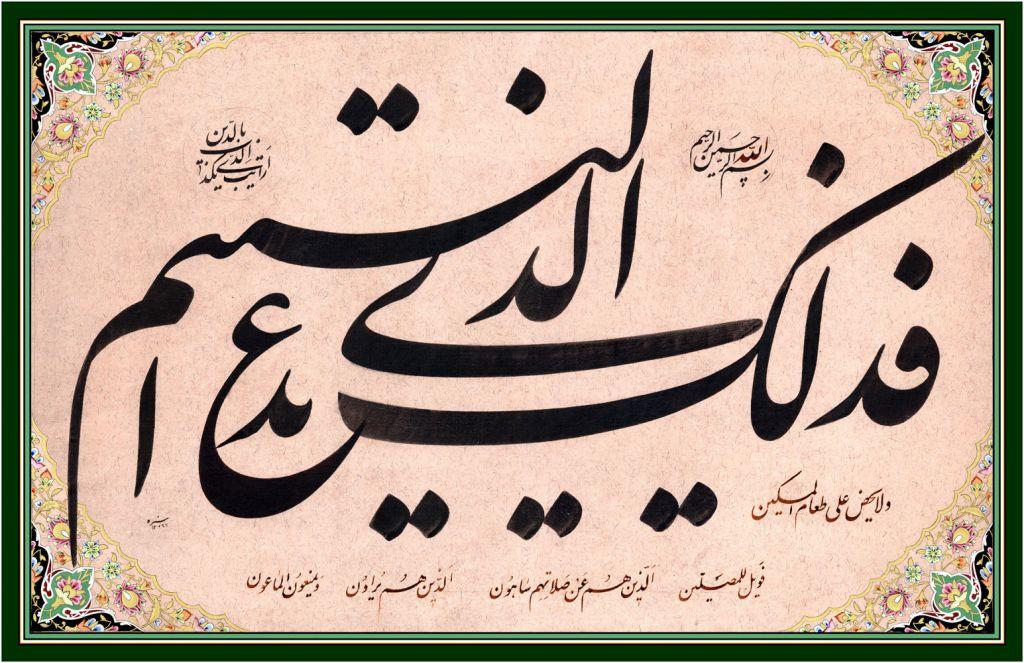 بسم الله الرحمن الرحیم
ارایت الذی یکذب
بالدین
فذلک الذی یدع الیتیم
ولا یحض علی طعام المسکین
فویل للمصلین الذین هم عن صلاتهم ساهون الذین هم یراؤن و یمنعون الماعون